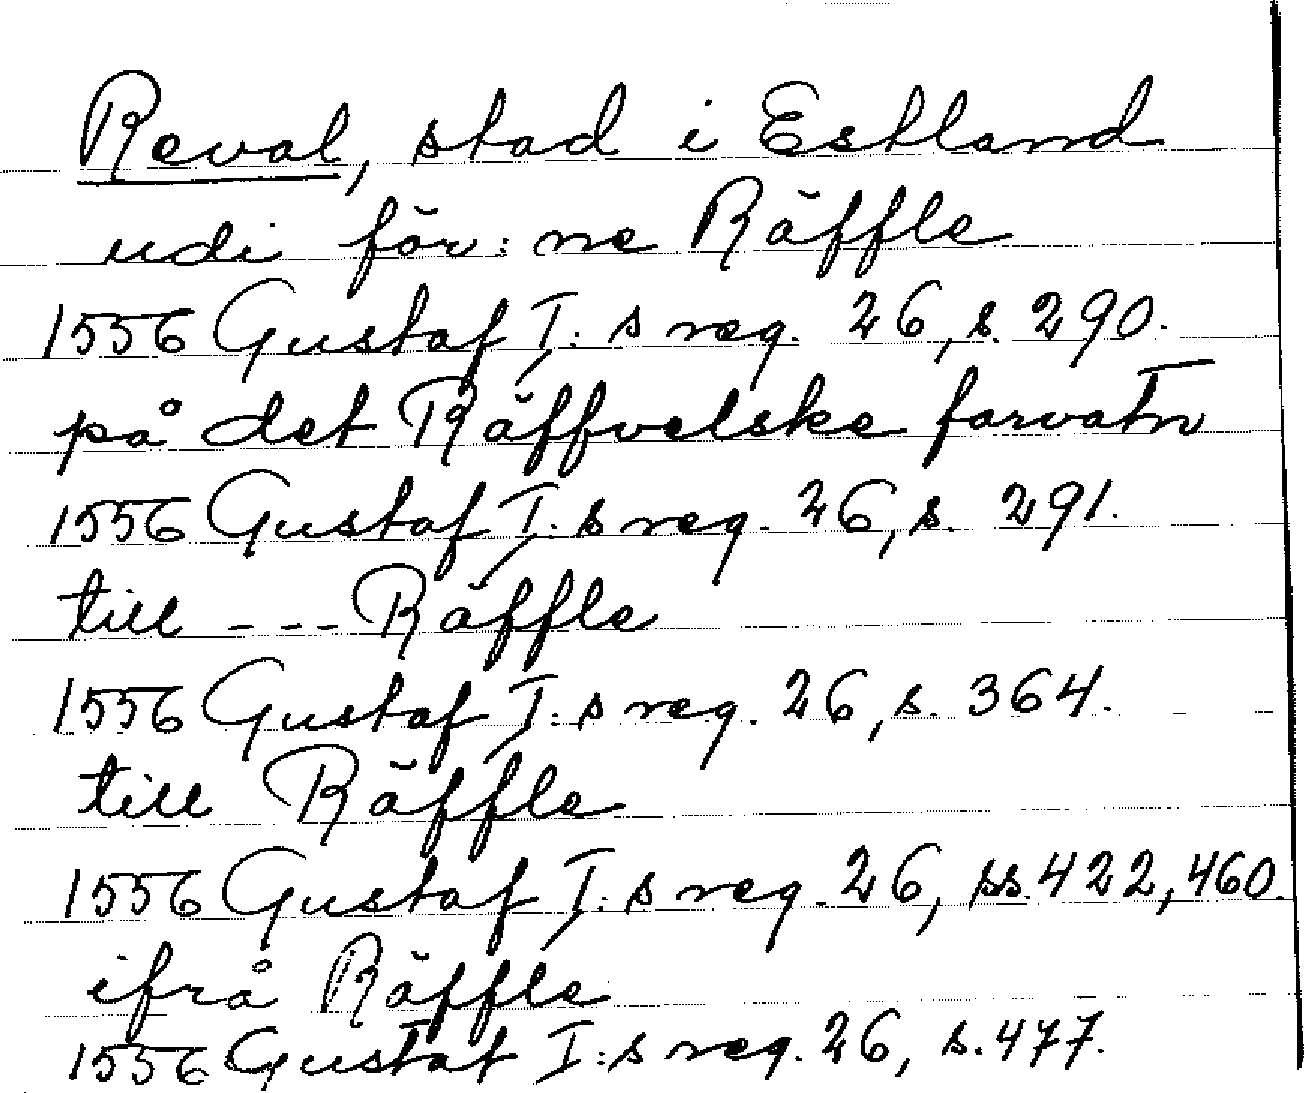 Reval, stad i Estland
udi för: ne Räffle
1556 Gustaf I: s reg. 26, s. 290.
på det Räffvelske farvatn
1556 Gustaf I: s reg. 26, s. 291.
till --- Räffle
1556 Gustaf I: s reg. 26, s. 364.
till Räffle
1556 Gustaf I: s reg. 26, ss. 422, 460.
ifrå Räffle
1556 Gustaf I: s reg. 26, s. 477.